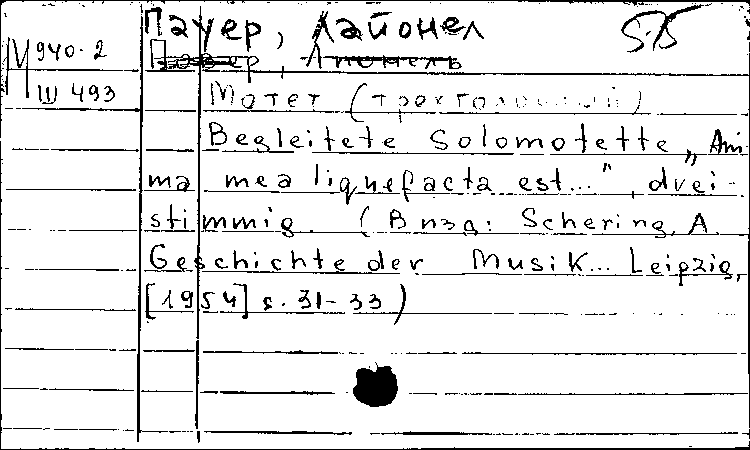 Пауер, Лайонел
575
М 940-2
Ш 493
Мотет (трехголосный)
Begleitete Solomotette „Ani-
ma mea liquefacta est...", drei-
stimmig. (В изд: Schering, A.
Geschichte der Musik... Leipzig,
[1954] s. 31-33)